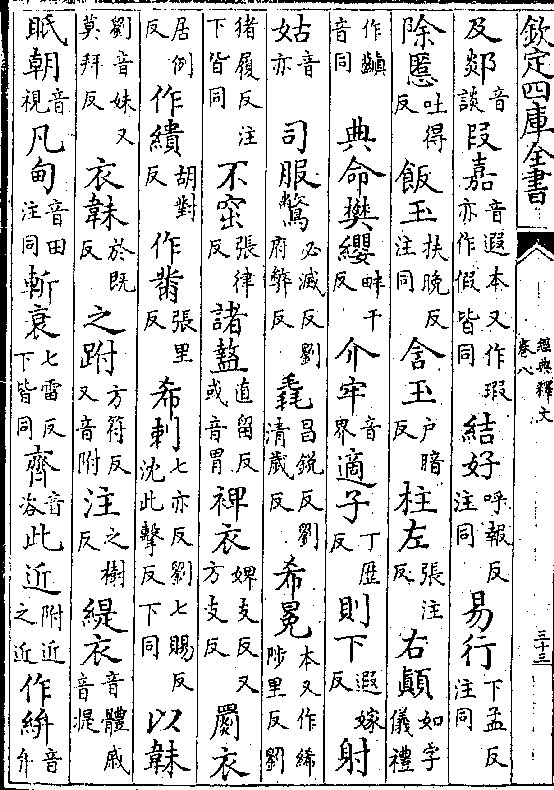 欽定四庫全書
經典釋文
卷八
三十三
及郯音談叚嘉音遐本又作瑕亦作假皆同結好呼報反注同易行下孟反注同
除慝吐得反飯玉扶晚反注同含玉户暗反柱左張注反右顚如字儀禮
作齻音同典命樊纓畔干反介牢音界適子丁歴反則下遐嫁反射
姑音亦司服鷩必滅反劉府弊反毳昌銳反劉清歲反希冕本又作絺陟里反劉
猪履反注下皆同不窋張律反諸盩直留反或音胄禆衣婢支反又方支反罽衣
居例反作繢胡對反作黹張里反希刺七亦反劉七賜反沈此擊反下同以韎
劉音妹又莫拜反衣韎於既反之跗方符反又音附注之樹反緹衣音體戚音㮛
眂朝音視凡甸音田注同斬衰七雷反下皆同齊音咨此近附近之近作絣音弁